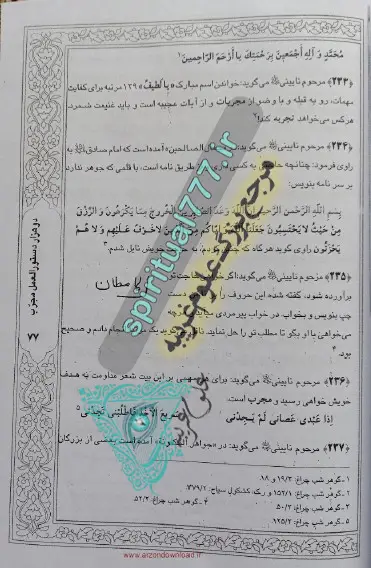 مُحَمَّدٍ وَ آلِهِ أَجْمَعِينَ بِرَحْمَتِكَ يَا أَرْحَمَ الرَّاحِمِينَ ۱
﴿۲۳۳﴾ مرحوم نایینی می‌گوید: خواندن اسم مبارک «یا لَطیفُ» ۱۲۹ مرتبه برای کفایت
مهمات، رو به قبله و با وضو از مجربات و از آیات عجیبه است و باید غنیت شمرد.
هرکس می‌خواهد تجربه کند!
﴿۲۳۴﴾ مرحوم نایینی می‌گوید: در الصالحین» آمده است که امام صادق به
راوی فرمود: چنانچه حاجتی به کسی طریق نامه است، با قلمی که جوهر ندارد
بر سر نامه بنویس:
بِسْمِ اللَّهِ الرَّحْمنِ الرَّحِيمِ وَعَدَ الْمَخْرَجَ مِمّا يَكْرَهُونَ وَ الرِّزْقَ
مِنْ حَيْثُ لا يَحْتَسِبُونَ جَعَلَنَا اللَّهُ وَ إِيّاكُمْ مِنَ لاخَوْفٌ عَلَيْهِمْ وَ لا هُمْ
يَحْزَنُونَ راوی گوید هرگاه که چنین کردم، به حاجت خویش نایل شدم. ۳
﴿۲۳۵﴾ مرحوم نایینی می‌گوید: اگر خواهی حاجت تو
برآورده شود، گفته شده این حروف را بر دست
چپ بنویس و بخواب. در خواب پیرمردی می‌آید هرچه
می‌خواهی با او بگو تا مطلب تو را حل نماید. گوید یک انجام دادم و صحیح
بود. ۴
﴿۲۳۶﴾ مرحوم نایینی می‌گوید: برای هر بر این بیت شعر مداومت به هدف
خویش خواهی رسید و مجرب است:
إِذَا عَبْدِي عَصَانِي لَمْ يَجِدْنِي سَرِيعَ الأَخْذِ فَاطْلُبْنِي تَجِدْنِي ۵
﴿۲۳۷﴾ مرحوم نایینی می‌گوید: در «جواهر آمده است بعضی از بزرگان
۱ـ گوهر شب چراغ: ۱۹/۲ و ۱۸.
۲ـ گوهر شب چراغ: ۱۵۲/۱ و رک: کشکول سیاح: ۳۷۹/۲.
۳ـ گوهر شب چراغ: ۵۰/۲.
۴ـ گوهر شب چراغ: ۵۲/۲.
۵ـ گوهر شب چراغ: ۱۲۵/۲.
دو هزار دستورالعمل مجرّب
۷۷
spiritual777.ir
مرجع بزرگ علوم غریبه
علوم غریبه
www.arzondownload.ir